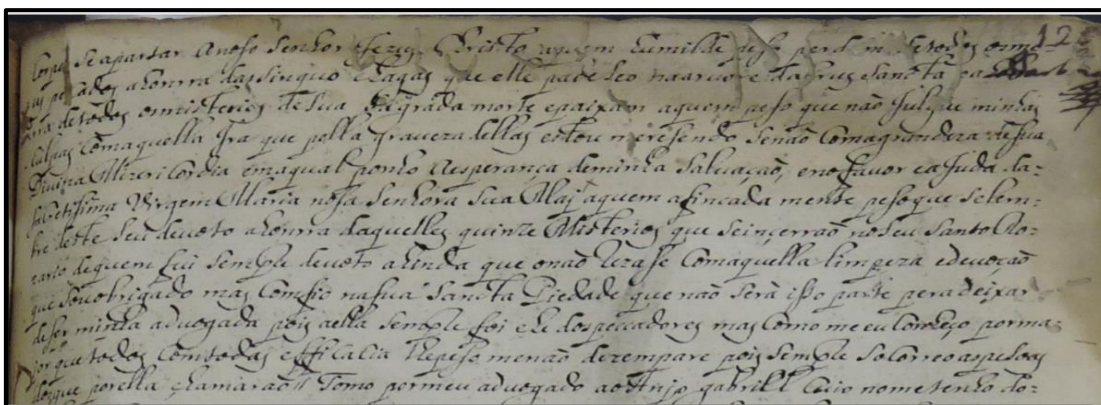 Corpo Se apartar A nosso Senhor Jezus Christo aquem humilde peso perdam de todos os me
us pecados a honra das sinquo chagas que elle padeseo na arvore da crus Sancta e a
ora de todos os misterios de Sua Sagrada morte e paixam aquem peso que não Julgue minhas
culpas Com aquella Ira que polla graveza dellas estou meresendo, Senão Com a grandeza de sua
Divina Mizericordia em aqual ponho a esperança de minha Salvação, e no favor e a Juda da
Sacratissima Virgem Maria nossa Senhora Sua Mai aquem afincada mente peso que se lem=
bre deste Seu devoto a honra daquelles quinze Misterios que se incerrão no seu Santo Ro=
zario de quem fui Sempre devoto ahinda que o não Rezase Com aquella limpeza e devoção
que Sou obrigado mas Comfio na sua Sancta Piedade que não Serà isso parte pera deixar
de ser minha advogada pois aella Sempre foi e he dos peccadores mas Como me eu Conheço por ma=
jor que todos Com todas efficasia Repeso me não dezempare pois Sempre Socorreo as pesoas
que por ella chamarão // Tomo por meu advogado ao Anjo gabriell Cuio nome tenho do=
12